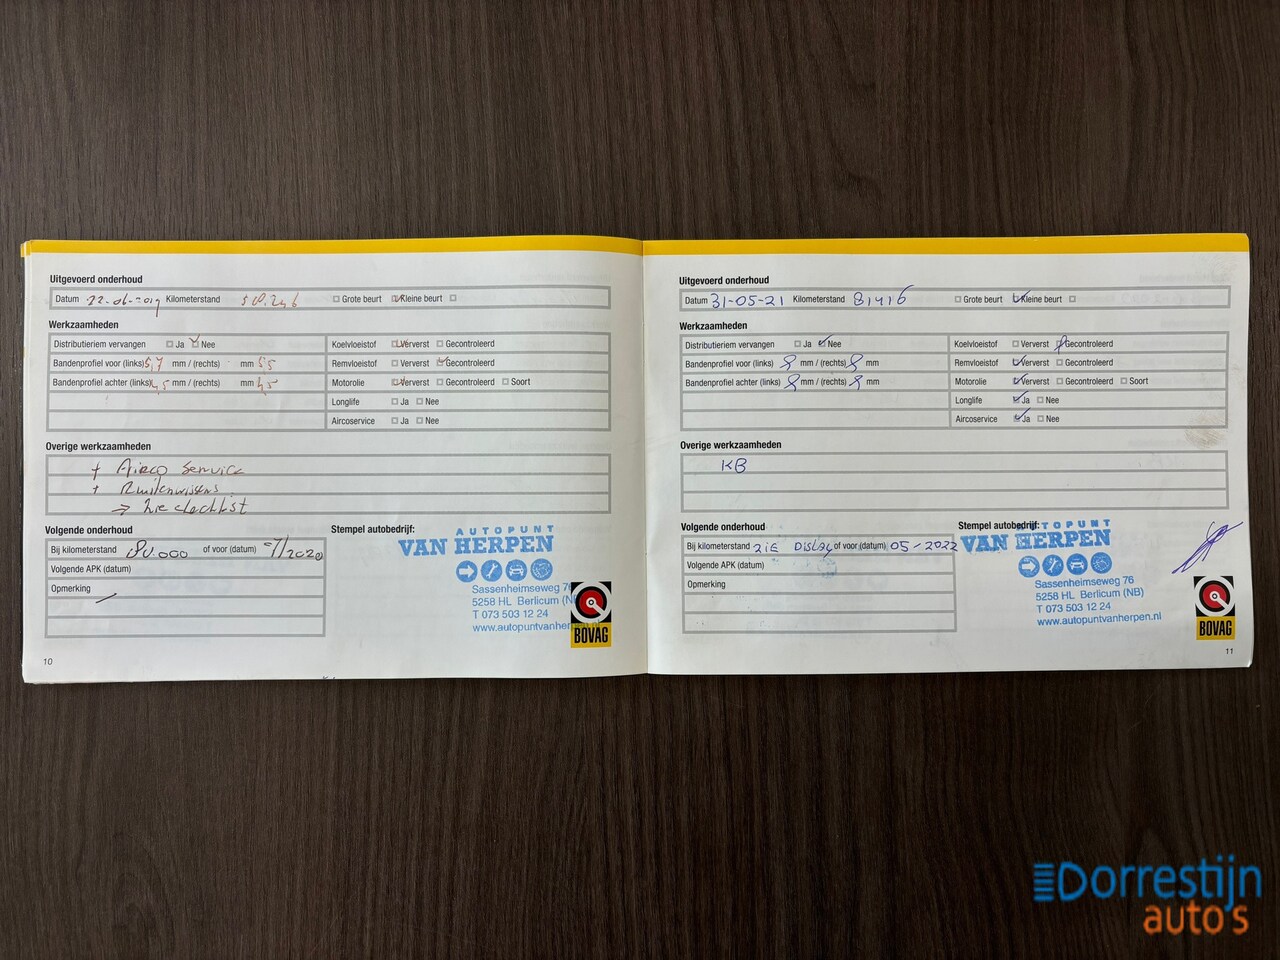 Uitgevoerd onderhoud
Datum 22-06-2019 Kilometerstand Grote beurt Kleine beurt
Werkzaamheden
Distributieriem vervangen Ja Nee
Bandenprofiel voor (links) 5,7 mm / (rechts) mm 5,5
Bandenprofiel achter (links) 4,5 mm / (rechts) mm 4,5
Koelvloeistof Ververst Gecontroleerd
Remvloeistof Ververst Gecontroleerd
Motorolie Ververst Gecontroleerd Soort
Longlife Ja Nee
Aircoservice Ja Nee
Overige werkzaamheden
+ Airco Service
+ Ruitenwissers
→ zie checklist
Volgende onderhoud
Bij kilometerstand 80.000 of voor (datum) 07/2020
Volgende APK (datum)
Opmerking
Stempel autobedrijf:
AUTOPUNT
VAN HERPEN
Sassenheimseweg 76
5258 HL Berlicum (NB
T 073 503 12 24
www.autopuntvanher
BOVAG
10
Uitgevoerd onderhoud
Datum 31-05-21 Kilometerstand 81416 Grote beurt Kleine beurt
Werkzaamheden
Distributieriem vervangen Ja Nee
Bandenprofiel voor (links) 8 mm / (rechts) 8 mm
Bandenprofiel achter (links) 8 mm / (rechts) 8 mm
Koelvloeistof Ververst Gecontroleerd
Remvloeistof Ververst Gecontroleerd
Motorolie Ververst Gecontroleerd Soort
Longlife Ja Nee
Aircoservice Ja Nee
Overige werkzaamheden
KB
Volgende onderhoud
Bij kilometerstand zie Display of voor (datum) 05-2022
Volgende APK (datum)
Opmerking
Stempel autobedrijf:
AUTOPUNT
VAN HERPEN
Sassenheimseweg 76
5258 HL Berlicum (NB)
T 073 503 12 24
www.autopuntvanherpen.nl
BOVAG
11
Dorrestijn
auto's